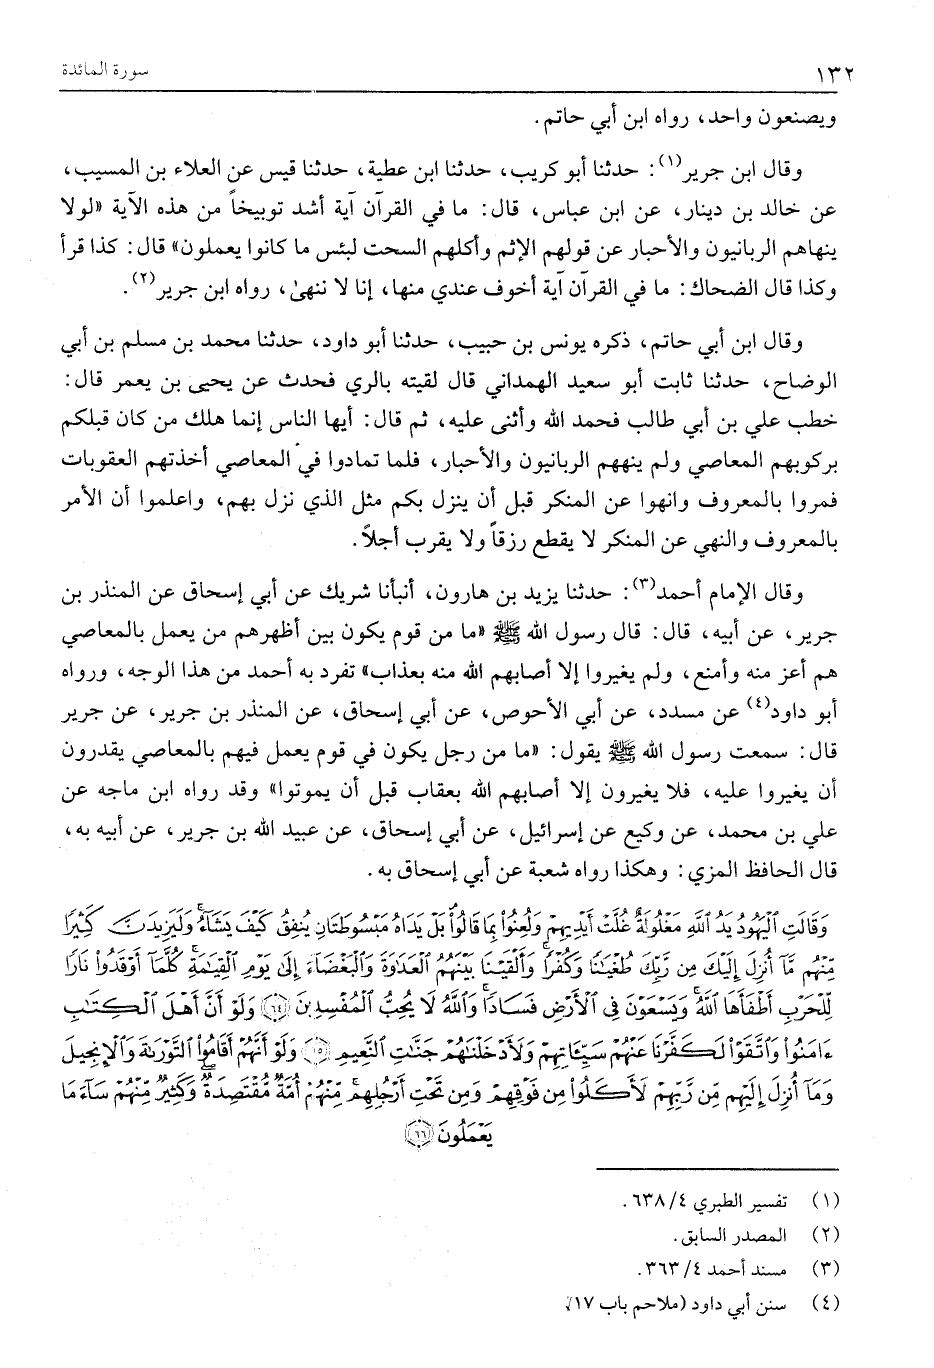 ١٣٢ سورة المائدة
ويصنعون واحد، رواه ابن أبي حاتم.
وقال ابن جرير(١): حدثنا أبو كريب، حدثنا ابن عطية، حدثنا قيس عن العلاء بن المسيب،
عن خالد بن دينار، عن ابن عباس، قال: ما في القرآن آية أشد توبيخاً من هذه الآية «لولا
ينهاهم الربانيون والأحبار عن قولهم الإثم وأكلهم السحت لبئس ما كانوا يعملون» قال: كذا قرأ
وكذا قال الضحاك: ما في القرآن آية أخوف عندي منها، إنا لا ننهىٰ، رواه ابن جرير(٢).
وقال ابن أبي حاتم، ذكره يونس بن حبيب، حدثنا أبو داود، حدثنا محمد بن مسلم بن أبي
الوضاح، حدثنا ثابت أبو سعيد الهمداني قال لقيته بالري فحدث عن يحيى بن يعمر قال:
خطب علي بن أبي طالب فحمد الله وأثنى عليه، ثم قال: أيها الناس إنما هلك من كان قبلكم
بركوبهم المعاصي ولم ينههم الربانيون والأحبار، فلما تمادوا في المعاصي أخذتهم العقوبات
فمروا بالمعروف وانهوا عن المنكر قبل أن ينزل بكم مثل الذي نزل بهم، واعلموا أن الأمر
بالمعروف والنهي عن المنكر لا يقطع رزقاً ولا يقرب أجلاً.
وقال الإمام أحمد(٣): حدثنا يزيد بن هارون، أنبأنا شريك عن أبي إسحاق عن المنذر بن
جرير، عن أبيه، قال: قال رسول الله ﷺ «ما من قوم يكون بين أظهرهم من يعمل بالمعاصي
هم أعز منه وأمنع، ولم يغيروا إلا أصابهم الله منه بعذاب» تفرد به أحمد من هذا الوجه، ورواه
أبو داود(٤) عن مسدد، عن أبي الأحوص، عن أبي إسحاق، عن المنذر بن جرير، عن جرير
قال: سمعت رسول الله ﷺ يقول: «ما من رجل يكون في قوم يعمل فيهم بالمعاصي يقدرون
أن يغيروا عليه، فلا يغيرون إلا أصابهم الله بعقاب قبل أن يموتوا» وقد رواه ابن ماجه عن
علي بن محمد، عن وكيع عن إسرائيل، عن أبي إسحاق، عن عبيد الله بن جرير، عن أبيه به،
قال الحافظ المزي: وهكذا رواه شعبة عن أبي إسحاق به.
وَقَالَتِ ٱلْيَهُودُ يَدُ ٱللَّهِ مَغْلُولَةٌ غُلَّتْ أَيْدِيهِمْ وَلُعِنُوا۟ بِمَا قَالُوا۟ بَلْ يَدَاهُ مَبْسُوطَتَانِ يُنفِقُ كَيْفَ يَشَآءُ وَلَيَزِيدَنَّ كَثِيرًا
مِّنْهُم مَّآ أُنزِلَ إِلَيْكَ مِن رَّبِّكَ طُغْيَٰنًا وَكُفْرًا وَأَلْقَيْنَا بَيْنَهُمُ ٱلْعَدَٰوَةَ وَٱلْبَغْضَآءَ إِلَىٰ يَوْمِ ٱلْقِيَٰمَةِ كُلَّمَآ أَوْقَدُوا۟ نَارًا
لِّلْحَرْبِ أَطْفَأَهَا ٱللَّهُ وَيَسْعَوْنَ فِى ٱلْأَرْضِ فَسَادًا وَٱللَّهُ لَا يُحِبُّ ٱلْمُفْسِدِينَ ﴿٦٤﴾ وَلَوْ أَنَّ أَهْلَ ٱلْكِتَٰبِ
ءَامَنُوا۟ وَٱتَّقَوْا۟ لَكَفَّرْنَا عَنْهُمْ سَيِّـَٔاتِهِمْ وَلَأَدْخَلْنَٰهُمْ جَنَّٰتِ ٱلنَّعِيمِ ﴿٦٥﴾ وَلَوْ أَنَّهُمْ أَقَامُوا۟ ٱلتَّوْرَىٰةَ وَٱلْإِنجِيلَ
وَمَآ أُنزِلَ إِلَيْهِم مِّن رَّبِّهِمْ لَأَكَلُوا۟ مِن فَوْقِهِمْ وَمِن تَحْتِ أَرْجُلِهِم مِّنْهُمْ أُمَّةٌ مُّقْتَصِدَةٌ وَكَثِيرٌ مِّنْهُمْ سَآءَ مَا
يَعْمَلُونَ ﴿٦٦﴾
(١) تفسير الطبري ٤/ ٦٣٨.
(٢) المصدر السابق.
(٣) مسند أحمد ٤/ ٣٦٣.
(٤) سنن أبي داود (ملاحم باب ١٧).